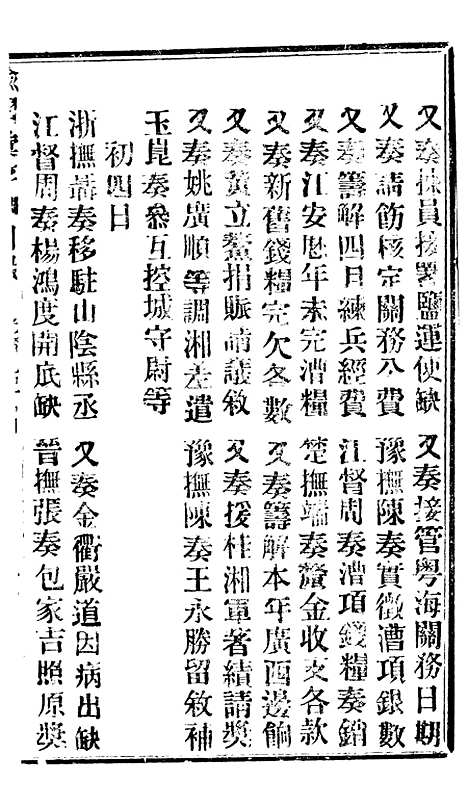 又奏揀員接署鹽運使缺　又奏接管粤海關務日期
又奏請飭核定關務公費　豫撫陳奏實徵漕項銀數
又奏籌解四月練兵經費　江督周奏漕項錢糧奏銷
又奏江安歷年未完漕糧　楚撫端奏釐金收支各款
又奏新舊錢糧完欠各數　又奏籌解本年廣西邊餉
又奏黃立鰲捐賑請議敘　又奏援桂湘軍著績請獎
又奏姚廣順等調湘差遣　豫撫陳奏王永勝留敘補
玉崑奏參互控城守尉等
初四日
浙撫聶奏移駐山陰縣丞　又奏金衢嚴道因病出缺
江督周奏楊鴻度開底缺　晉撫張奏包家吉照原獎